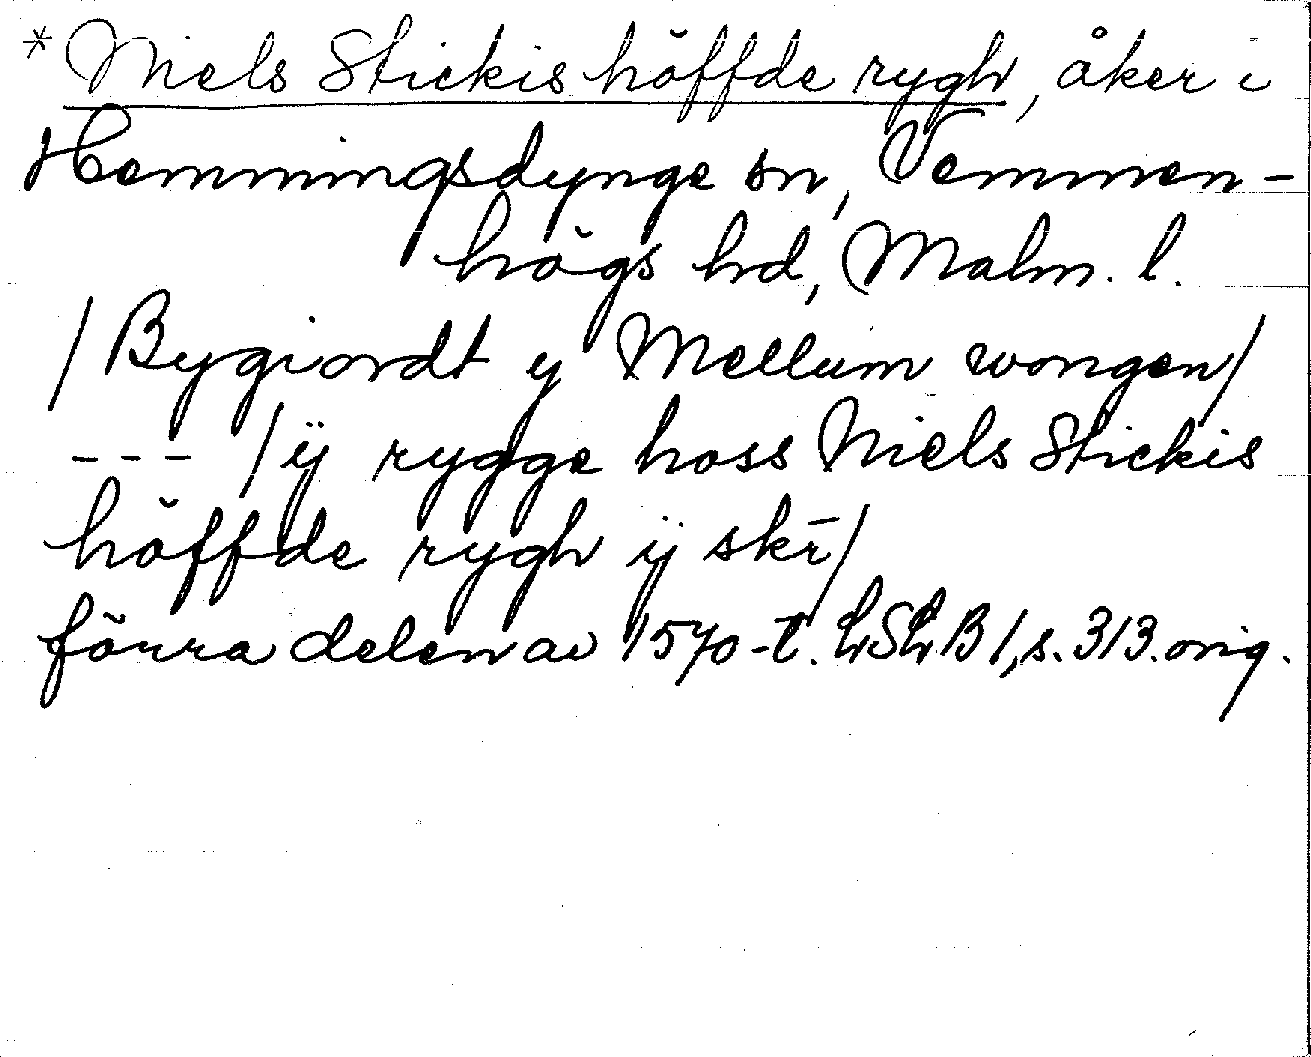 *Niels Stickis höffde rygh, åker i
Hemmingsdynge sn, Vemmen-
högs hd, Malm. l.
/Bygiordt y Mellum wongen/
--- /ÿ rygge hoss Niels Stickis
höffde rygh ÿ skī/
förra delen av 1570-t. LSLB 1, s. 313. orig.